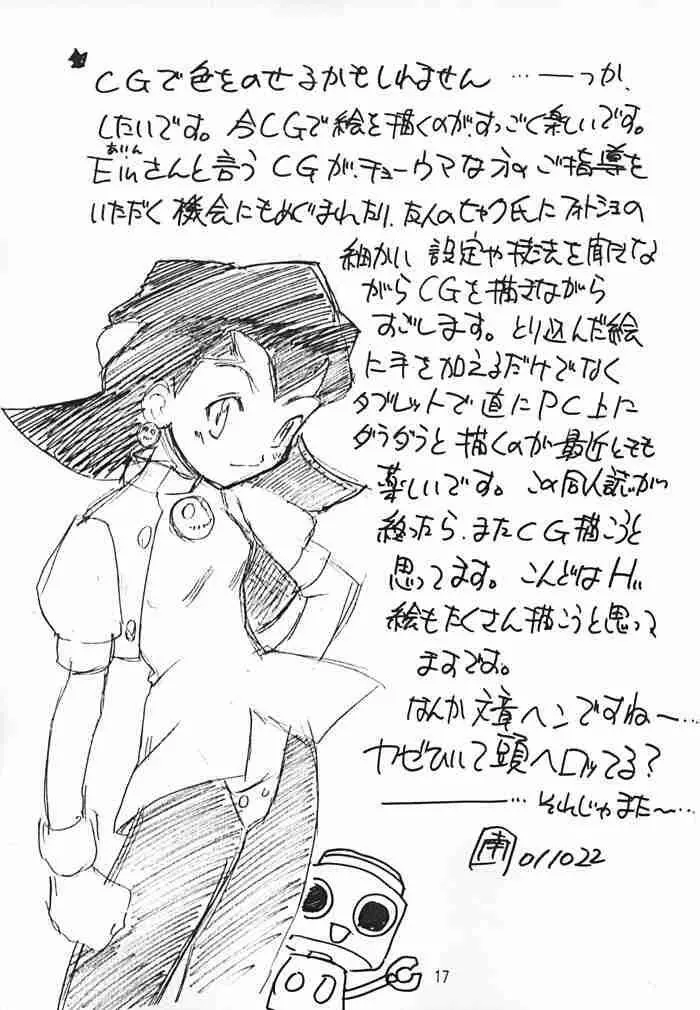 CGで色をのせるかもしれません …―っか、
したいです。今CGで絵を描くのが、すっごく楽しいです。
あいん
Einさんと言う CGが、チョーウマな方の ご指導を
いただく 機会にもめぐまれたり、友人のセャク氏にフォトショの
細かい 設定や技法を聞きな
がらCGを描きながら
すごします。とり込んだ絵
に手を加えるだけでなく
タブレットで直にPC上に
ダラダラと描くのが最近とても
楽しいです。この同人誌が
終ったら、またCG描こうと
思ってます。こんどはH
絵もたくさん描こうと思って
ますです。
なんか文章ヘンですねー…
カゼひいて頭ヘロってる?
――…それじゃまた〜…
南 011022
17